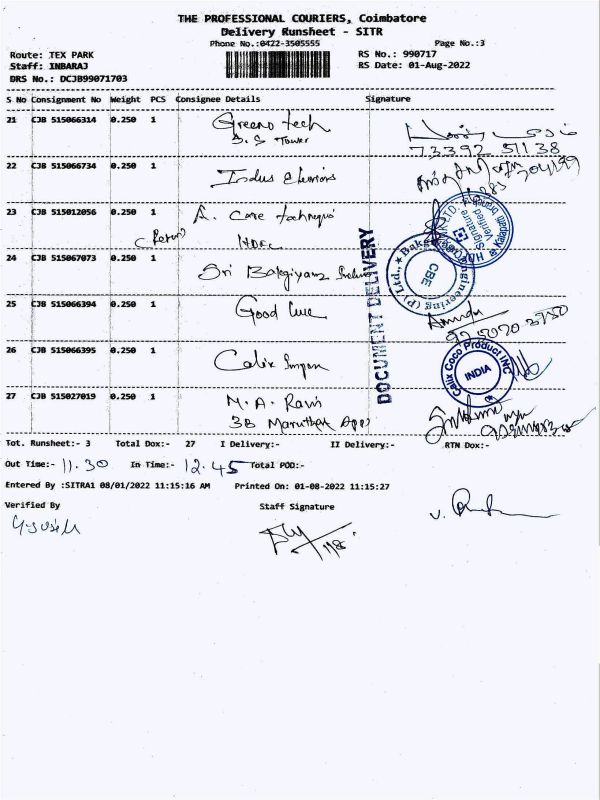 THE PROFESSIONAL COURIERS, Coimbatore
Delivery Runsheet - SITR
Phone No.:0422-3505555 Page No.:3
Route: TEX PARK RS No.: 990717
Staff: INBARAJ RS Date: 01-Aug-2022
DRS No.: DCJB99071703
S No Consignment No Weight PCS Consignee Details Signature
21 CJB 515066314 0.250 1 Greeno tech
B.S Tower
73392 51138
22 CJB 515066734 0.250 1 Indus
23 CJB 515012056 0.250 1 A. Care
HDFC
24 CJB 515067073 0.250 1 Sri
25 CJB 515066394 0.250 1 Good
26 CJB 515066395 0.250 1 Calix
27 CJB 515027019 0.250 1 M. A. Ravi
3B
DOCUMENT DELIVERY
Signature
Verified
CBE
Calix Coco Product INC
INDIA
Tot. Runsheet:- 3 Total Dox:- 27 I Delivery:- II Delivery:- RTN Dox:-
Out Time:- 11.30 In Time:- 12.45 Total POD:-
Entered By :SITRA1 08/01/2022 11:15:16 AM Printed On: 01-08-2022 11:15:27
Verified By Staff Signature